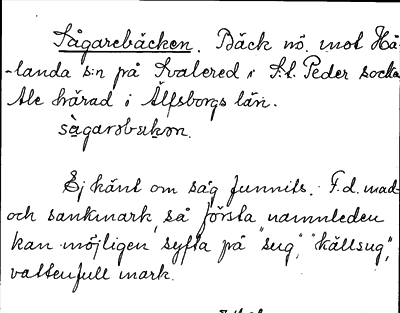 Sågarebäcken. Bäck nö. mot Hå-
-landa s:n på Svalered i S:t. Peder socke
Ale härad i Älfsborgs län.
Ej känt om såg funnits. F.d. mad-
och sankmark, så första namnleden
kan möjligen syfta på "sug", "källsug",
vattenfull mark.